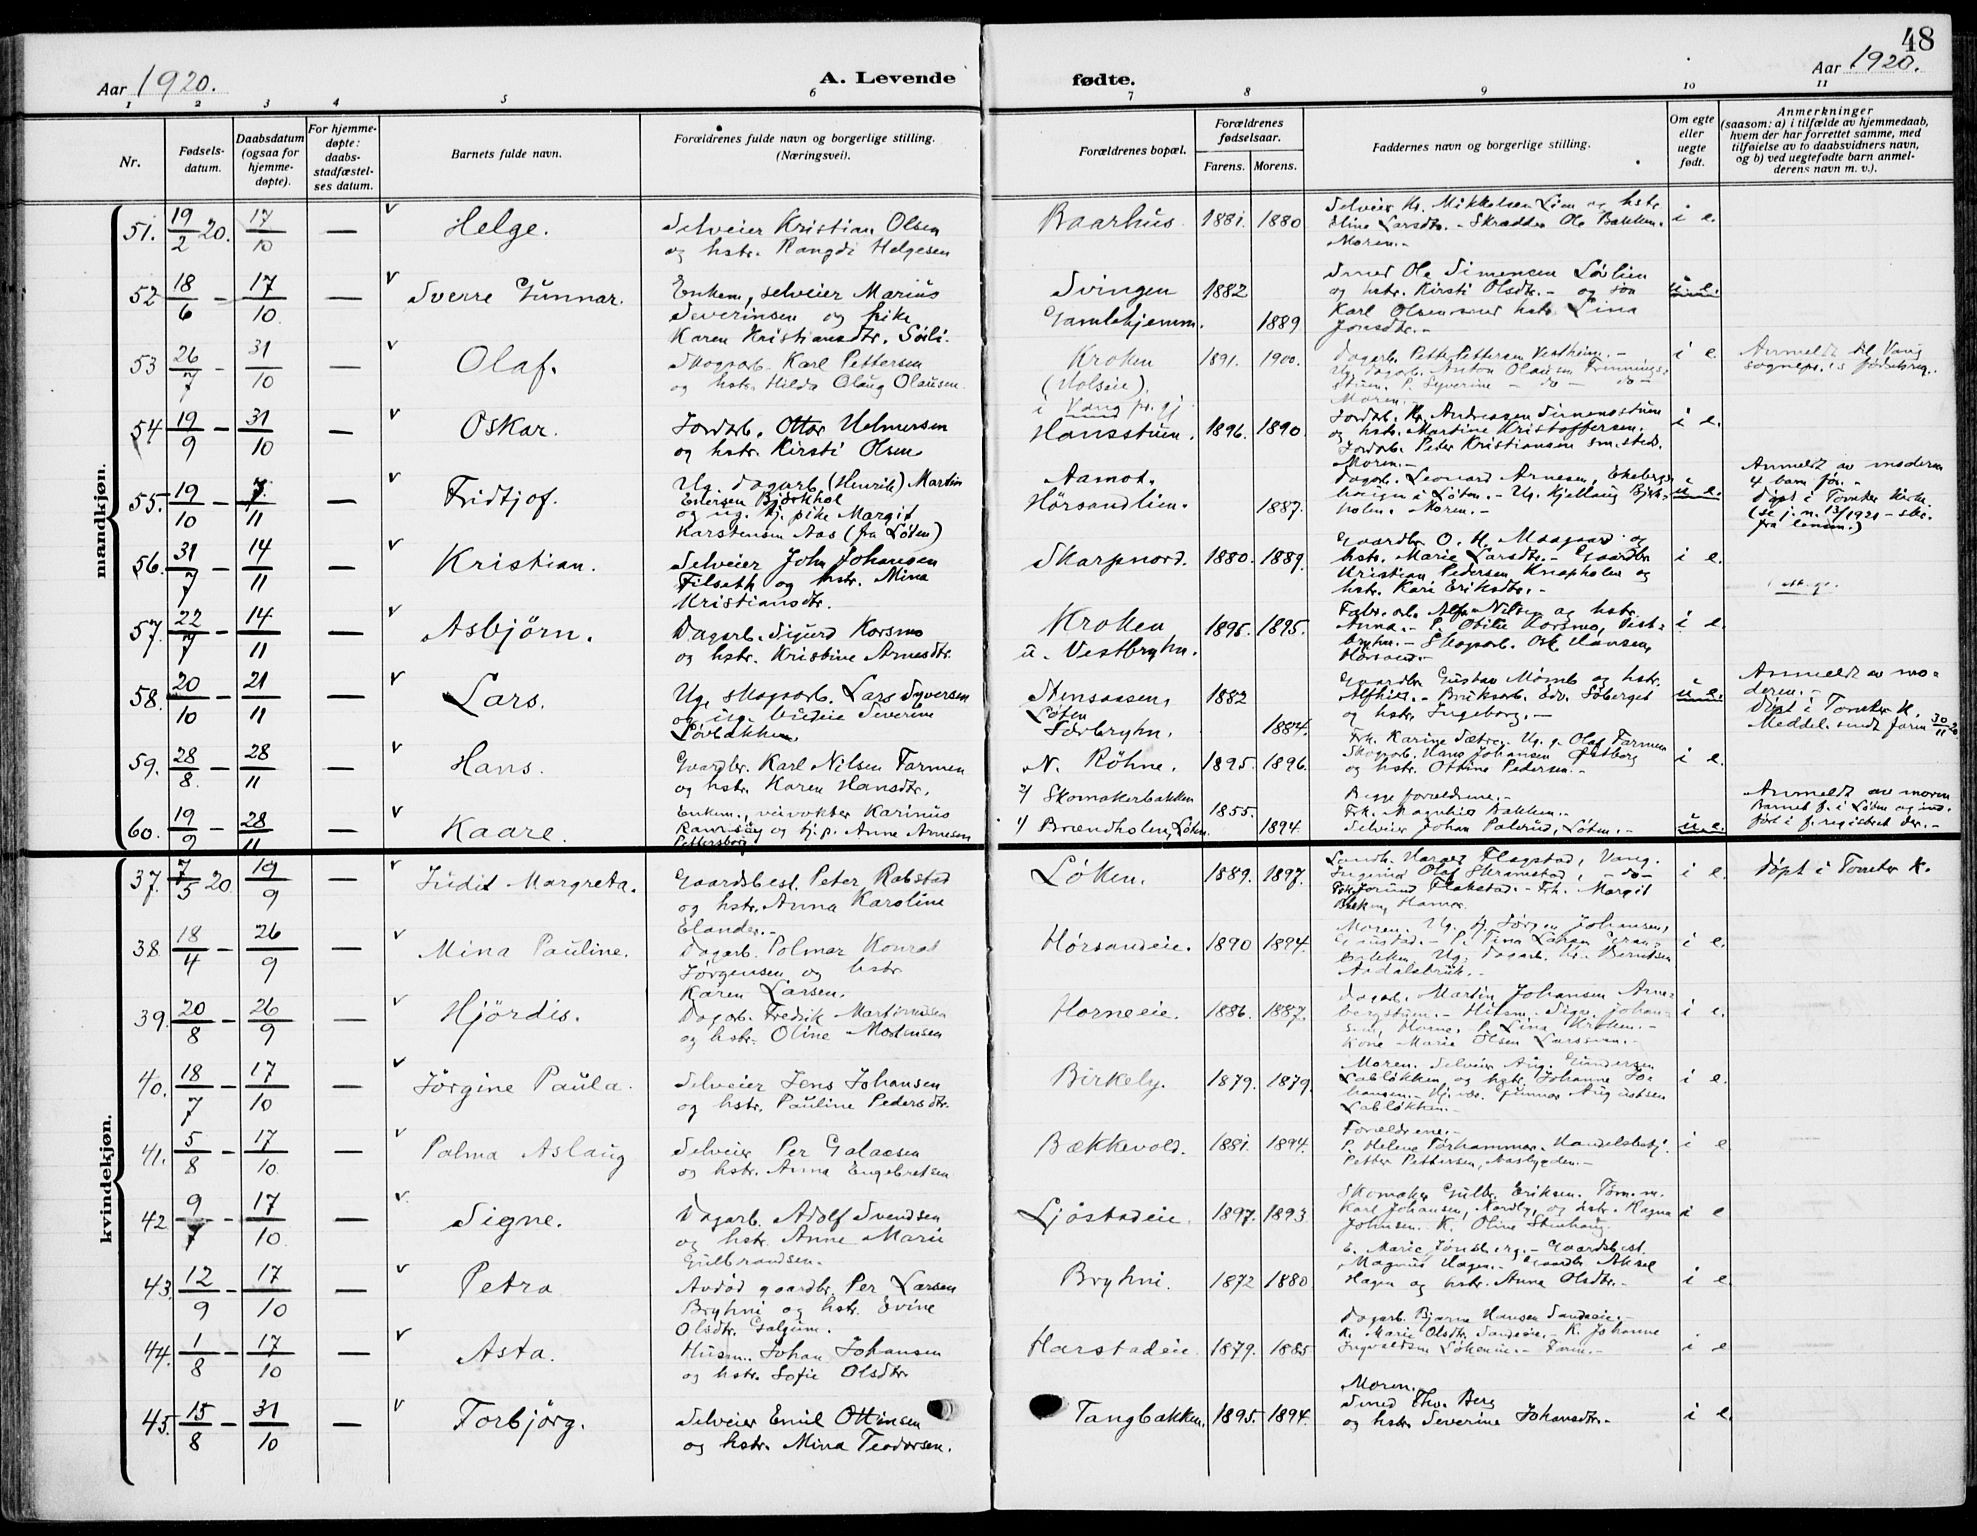 48
Aar 1920. A. Levende fødte. Aar 1920.
1 2 3 4 5 6 7 8 9 10 11
Nr. Fødselsdatum. Daabsdatum (ogsaa for hjemmedøpte). For hjemmedøpte: daabsstadfæstelses datum. Barnets fulde navn. Forældrenes fulde navn og borgerlige stilling. (Næringsvei). Forældrenes bopæl. Forældrenes fødselsaar. Farens. Morens. Faddernes navn og borgerlige stilling. Om egte eller uegte født. Anmerkninger (saasom: a) i tilfælde av hjemmedaab, hvem der har forrettet samme, med tilføielse av to daabsvidners navn, og b) ved uegtefødte barn anmelderens navn m. v.).
mandkjøn.
51. 19/2 20. 17/10 Helge. Selveier Kristian Olsen
og hstr. Rangdi Helgesen
Baarhus 1881. 1880 Selveier Kr. Mikkelsen Lien og hstr.
Eline Larsdtr. - Skrædder Ole Bakken.
Moren.- i e.
52 18/6 - 17/10. — Sverre Gunnar. Enkem., selveier Marius
Severinsen og pike
Karen Kristiansdtr. Söli.
Svingen 1882
Gamlehjemm. 1889
Smed Ole Simensen Lövlien
og hstr. Kirsti Olsdtr. - og søn
Karl Olsen hstr. Lina
Jonsdtr.- u. e.
53 26/7 - 31/10 — Olaf. Skogsarb. Karl Pettersen
og hstr. Hilda Olaug Olausen.
Kroken
(Holseie).
i Vang pr.gj
1891. 1900. Dagarb. Petter Pettersen Vestheim. -
Ug. dagarb. Anton Olausen
P. Syverine - do - do -
Moren.- i e. Anmeldt til Vang
sognepr.'s fødselsreg.
54 19/9 - 31/10 — Oskar. Jordarb. Ottar Helmersen
og hstr. Kirsti Olsen.
Hansstuen. 1896. 1890. Jordarb. Kr. Andreassen Simensstuen
og hstr. Martine Kristoffersen.
Jordarb. Peder Kristiansen sm.steds.
Moren.- i e.
55. 19/10 - 7/11 — Fridtjof. Ug. dagarb. (Henrik) Martin
Enersen Bjørkhol
og ug. tj. pike Margit
Karstensen Aas (fra Løten)
Aamot.
Hörsandlien. 1887. Dagarb. Leonard Arnesen, Ekeberg
i Løten. - Ug. Kjellaug Björk-
holen. Moren.- u. e. Anmeldt av moderen
4 barn før. -
Døpt i Tomter kirke
(se j.n. 13/1921 - skr.
fra lensm.)
56. 31/7 - 14/11 — Kristian. Selveier John Johansen
Filseth og hstr. Mina
Kristiansdtr.
Skarpnord. 1880. 1889. Gaardbr. O. H. Maagaar og
hstr. Marie Larsdtr. - Gaardbr.
Kristian Pedersen Knapholen og
hstr. Kari Eriksdtr.- i e.
57. 22/7 - 14/11 — Asbjörn. Dagarb. Sigurd Korsmo
og hstr. Kristine Arnesdtr.
Kroken
u. Vestbryhn. 1895. 1895. Fabr. arb. Alfr. Nilsen og hstr.
Anna. - P. Otilie Korsmo, Vest-
bryhn. - Skogsarb. Osk. Hansen,
Hörsand. i e.
58. 20/10 - 21/11 — Lars. Ug. skogsarb. Lars Syversen
og ug. budeie Severine
Lövbakken.
Stensaasen,
Løten
Sørbryhn. 1882 1884. Gaardbr. Gustav Momb og hstr.
Alfhild. - Bruksarb. Edv. Søberget
og hstr. Ingeborg.- u. e. Anmeldt av mo-
deren.-
Døpt i Tomter K.
Meddel. sendt faren 30/11 20
59. 28/8. - 28/11 — Hans. Gaardbr. Karl Nilsen Farmen
og hstr. Karen Hansdtr.
N. Röhne. 1895. 1896. Frk. Karine Sætre. - Ug. g. Olaf Farmen
Skogarb. Hans Johansen Østborg
og hstr. Ottine Pedersen.- i e.
60. 19/9 - 28/11 — Kaare. Enkem., veivokter Karinus
og tj.p. Anne Arnesen
Pettersborg
Skomakerbakken
Brændholen, Løten. 1855. 1894. Begge forældrene. -
Frk. Magnhild Bakken. -
Selveier Johan Palerud, Løten. - u. e. Anmeldt av moren
Barnet f. i Løten og ind-
ført i f. registret der. -
kvindekjøn.
37. 7/5 20 19/9 — Judit Margreta. Gaardsbest. Peter Rabstad
og hstr. Anna Karoline
Elander. -
Løken. 1889. 1897. Landh. Harald Flagstad, Vang.
Ingeniør Olaf Skramstad, - do -
Frk. Jorund Flakstad. - Frk. Margit
Bekken, Hamar. i e. døpt i Tomter K.
38 18/4 - 26/9 — Mina Pauline. Dagarb. Palmar Konrad
Jørgensen og hstr
Karen Larsen.
Hörsandeie. 1890 1894. Moren. Ug. g. Jörgen Johansen,
Gaustad. - P. Tina Larsen Gran-
bakken. Ug. dagarb. Kr. Berntsen
Aadalsbruk. - i e.
39. 20/8 - 26/9 — Hjördis. Dagarb. Fredrik Martinusen
og hstr. Oline Mortensen
Horneeie. 1886. 1887. Dagarb. Martin Johansen Arne-
bergstuen. - Husm. Sigv. Johan-
sen, Horne. P. Lina Kroken. -
Kone Marie Olsen Larssven. - i e.
40. 18/7 - 17/10 — Jörgine Paula. Selveier Jens Johansen
og hstr. Pauline Pedersdtr.
Birkely. 1879. 1879. Moren. Selveier Aug. Gundersen
Labløkken og hstr. Johanne Jo-
hansen. - Hj.vær. Gunnar Augustsen
Labløkken. - i e.
41. 5/8 - 17/10 — Palma Aslaug Selveier Per Galaasen
og hstr. Anna Engebretsen
Bækkevold. 1881. 1894. Forældrene. -
P. Helene Torhammer. Handelsbetj.
Petter Pettersen, Aasbygden. - i e.
42 9/7 - 17/10. — Signe. Dagarb. Adolf Svendsen
og hstr. Anne Marie
Gulbrandsen.
Ljöstadeie. 1897. 1893 Skomaker Gulbr. Eriksen. Töm.m.
Karl Johansen, Nordby, og hstr. Ragna
Johnsen. K. Oline Stenhaug. i e
43. 12/9 - 17/10 — Petra Avdød gaardbr. Per Larsen
Bryhni og hstr. Evine
Olsdtr. Galgum.
Bryhni. 1872 1880 E. Marie Jönsberg. - Gaardsbest.
Magnus Hagen. - Gaardbr. Aksel
Hagen og hstr. Anna Olsdtr. - i e
44. 1/8 - 17/10 — Asta. Husm. Johan Johansen
og hstr. Sofie Olsdtr.
Harstadeie 1879. 1885 Dagarb. Bjarne Hansen Sandeie. -
K. Marie Olsdtr. Sandeie. - K. Johanne
Ingvaldsen Løkeneie. - Faren. - i e
45. 15/8 - 31/10 — Torbjörg. Selveier Emil Ottinsen
og hstr. Mina Teodorsen.
Tangbakken. 1895. 1894. Moren.
Smed Thv. Berg
og hstr. Severine Johansdtr. - i e.